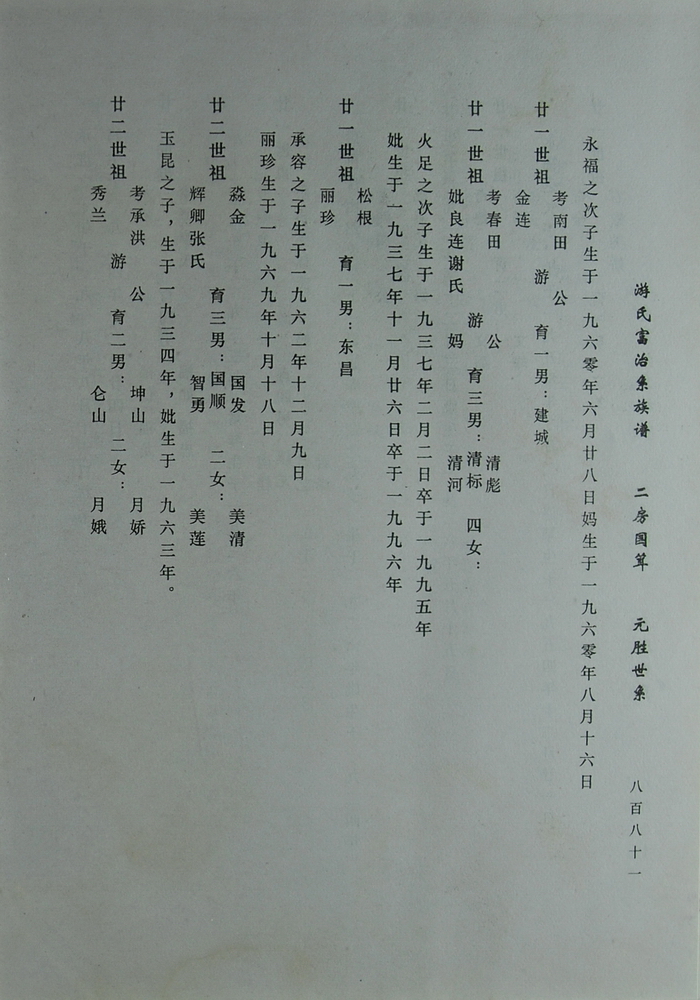 游氏富治系族谱 二房国算 元胜世系 八百八十一
永福之次子生于一九六零年六月廿八日妈生于一九六零年八月十六日
考南田 公
廿一世祖 游 育一男：建城
金连
考春田 公 清彪
廿一世祖 游 育三男：清标 四女：
妣良连谢氏 妈 清河
火足之次子生于一九三七年二月二日卒于一九九五年
妣生于一九三七年十一月廿六日卒于一九九六年
松根
廿一世祖 育一男：东昌
丽珍
承容之子生于一九六二年十二月九日
丽珍生于一九六九年十月十八日
淼金 国发 美清
廿二世祖 育三男：国顺 二女：
辉卿张氏 智勇 美莲
玉昆之子，生于一九三四年，妣生于一九六三年。
考承洪 公 坤山 月娇
廿二世祖 游 育二男： 二女：
秀兰 仑山 月娥